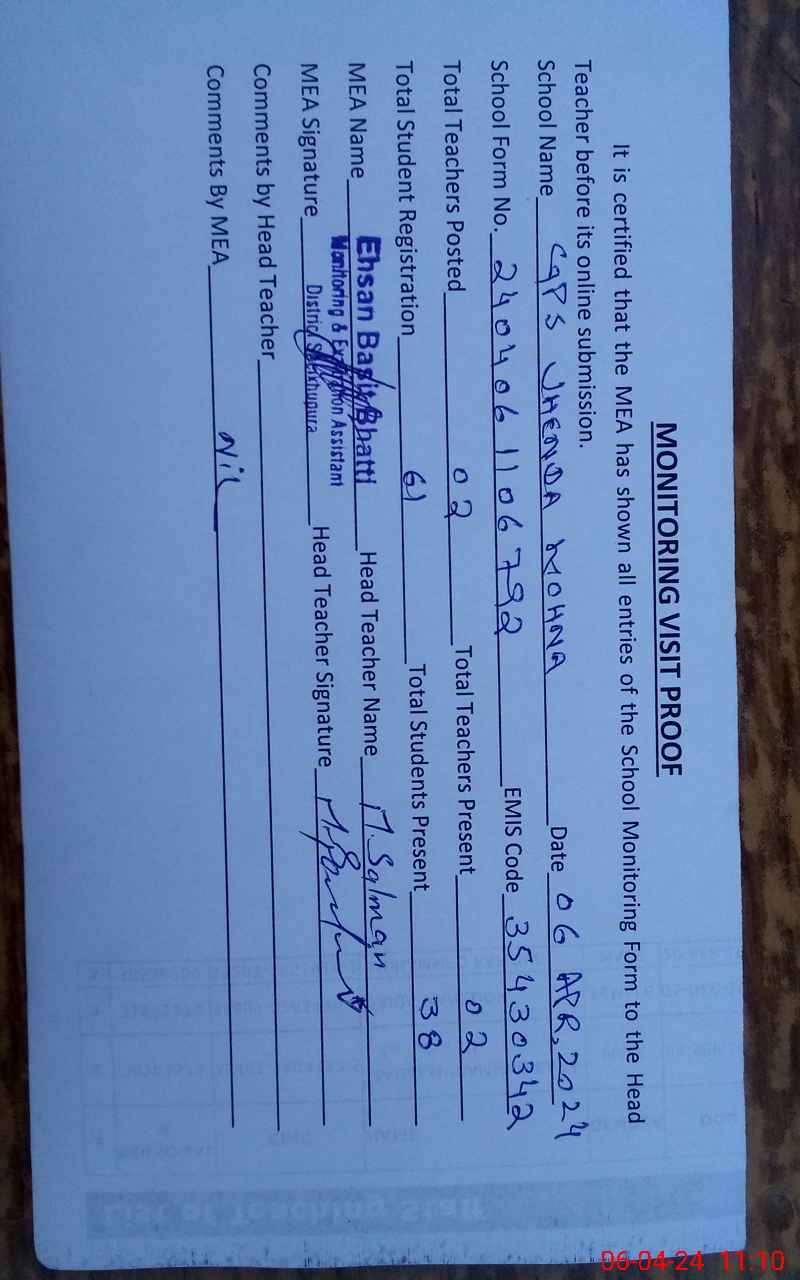 MONITORING VISIT PROOF
It is certified that the MEA has shown all entries of the School Monitoring Form to the Head
Teacher before its online submission.
School Name GPS JHENDA MOHNA Date 06 APR, 2024
School Form No. 2404061106792 EMIS Code 35430342
Total Teachers Posted 02 Total Teachers Present 02
Total Student Registration 61 Total Students Present 38
MEA Name Ehsan Basit Bhatti Head Teacher Name M. Salman
Monitoring & Evaluation Assistant
MEA Signature District Sheikhupura Head Teacher Signature
Comments by Head Teacher
Comments By MEA Nil
List of Teaching Staff
06-04-24 11:10